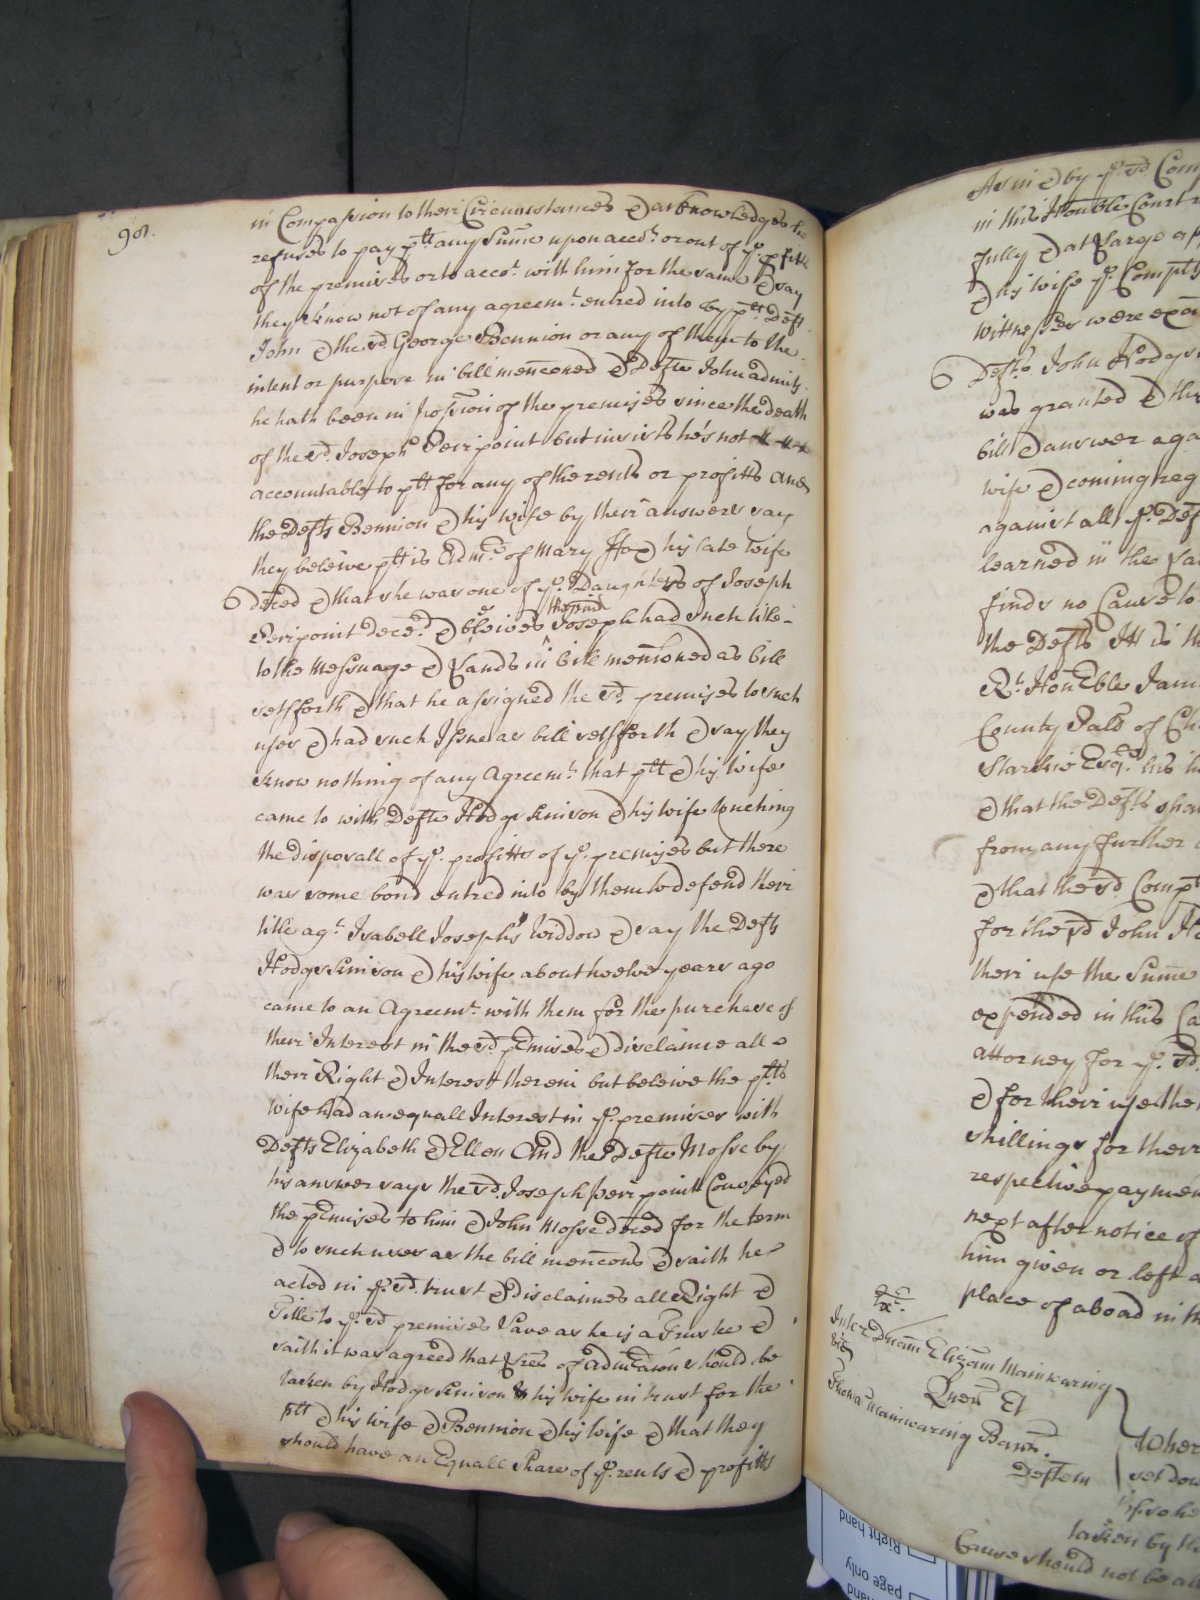 98.
in Compassion to their Circumstances & acknowledges he
refuses to pay ptt any Sume upon accot. or out of ye. pfitts
of the premises or to accot. with him for the same & say
they know not of any agreemt. entred into by ptt Deft
John & the sd. George Bennion or any of them to the
intent or purpose in bill menconed & Defte John admits
he hath been in possion of the premises since the death
of the sd. Joseph Peirpoint but insists he's not
accountable to ptt for any of the rents or profitts And
the Defts Bennion & his wife by their answers say
they beleive ptt is Admr. of Mary his late wife
deced & that she was one of ye. Daughters of Joseph
Peirpoint deced. & beleives the said Joseph had such title
to the Messuage & Lands in bill mentioned as bill
setsforth & that he assigned the sd. premises to such
uses & had such Issue as bill setsforth & say they
know nothing of any Agreemt. that ptt & his wife
came to with Defte Hodgskinson & his wife touching
the disposall of ye. profitts of ye. premises but there
was some bond entred into by them to defend their
title agt. Isabell Josephs widdow & say the Defts
Hodgskinson & his wife about twelve years ago
came to an Agreemt. with them for the purchase of
their Interest in the sd pmises & disclaime all
their Right & Interest therein but beleive the ptts
wife had an equall Interest in ye. premises with
Defts Elizabeth & Ellen And the Defte Mosse by
his answer says the sd. Joseph peirpoint Conveyed
the pmises to him & John Mosse deced for the term
& to such uses as the bill mencons & saith he
acted in ye. sd. trust & disclaimes all Right &
Title to ye. sd premises Save as he is a Trustee &
saith it was agreed that Lres of Admcon should be
taken by Hodgskinson & his wife in trust for the
ptt & his wife & Bennion & his wife & that they
should have an Equall Share of ye. rents & profitts
by ye. sd Comp
in this Honble Court
fully & at Large
& his wife ye. Compts
Wittnesses were
Defte John Hodgs
was granted & th
bill & answer aga
wife & coming
against all ye. Def
learned in the La
finds no Cause to
the Defts Itt is th
Rt. Honble Jam
County Palt of Ch
Starkie Esqr. his
& that the Defts sha
from any further
& that the sd. Compt
for the sd John Ho
their use the Sume
expended in this Ca
attorney for ye. sd.
& for their use the
shillings for their
respective paymen
next after notice of
him given or left a
place of aboad in th
Inter Dnam Elizam Mainwaring
vid
Quer Et
Mainwaring Bart.
Deftem
Wher
set dow
taken by th
Cause should not be all
Right hand
page only
hand